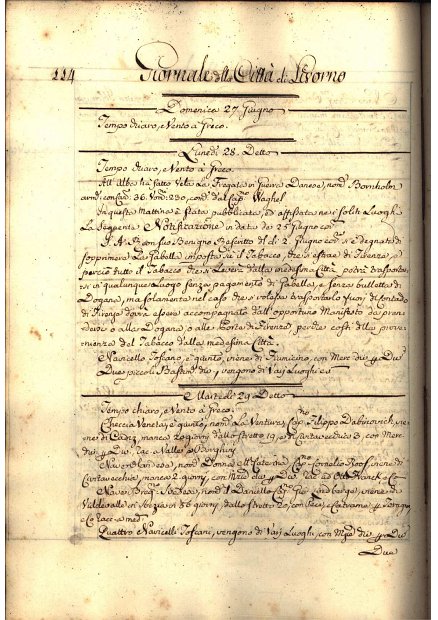 114 Giornale della Città di Livorno
Domenica 27 Giugno
Tempo chiaro, e Vento à Greco.
Lunedì 28. Detto
Tempo chiaro, e Vento à Greco.
All' Alba hà fatto Vela La Fregata di Guerra Danese, nom. Bornholm
arm. con Can. 36 Uom. 230, cond. dal Cap. Waghel
In questa mattina è stata pubblicata, ed affissata ne i soliti Luoghi
La Seguente Notificazione in data de 25 Giugno
S. A. R. con suo Benigno Rescritto del dì 2 Giugno si è degnata di
sopprimere La Gabella imposta sù il Tabacco, che si estrae di Firenze, e
perciò tutto il Tabacco che si Leverà dalla medesima Città potrà trasportar
si in qualunque Luogo senza pagamento di Gabella, e senza bulletta di
Dogana, ma solamente nel caso che si volesse trasportarlo fuori di Contado
di Firenze dovrà essere accompagnato dall' opportuno Manifesto da pren
dersi o alla Dogana, o alle Porte di Firenze, perchè costi della prove
nienza del Tabacco dalla medesima Città.
Navicello Toscano, è giunto, viene di Fiumicino, con Merc.
Due piccoli Bastim. vengono di Varj Luoghi
Martedì 29 Detto
Tempo chiaro, e Vento à Greco.
Checcia Veneta, è giunto, nom. La Ventura, Cap. Filippo Dabinovich, vie
ne di Cadiz, manca 20 giorni dallo stretto 19, e di Civitavecchia 3, con Merc.
Nave Olandese, nom. Donna Catarina Cap. Cornelio Roos, viene di
Civitavecchia, manca 2 giorni, con Merc.
Nave Svedese, nom. Daniello Cap. viene di
56 giorni, dallo stretto 20, con Pece, e Catrame
Quattro Navicelli Toscani, vengono di Varj Luoghi, con Merc.
Due